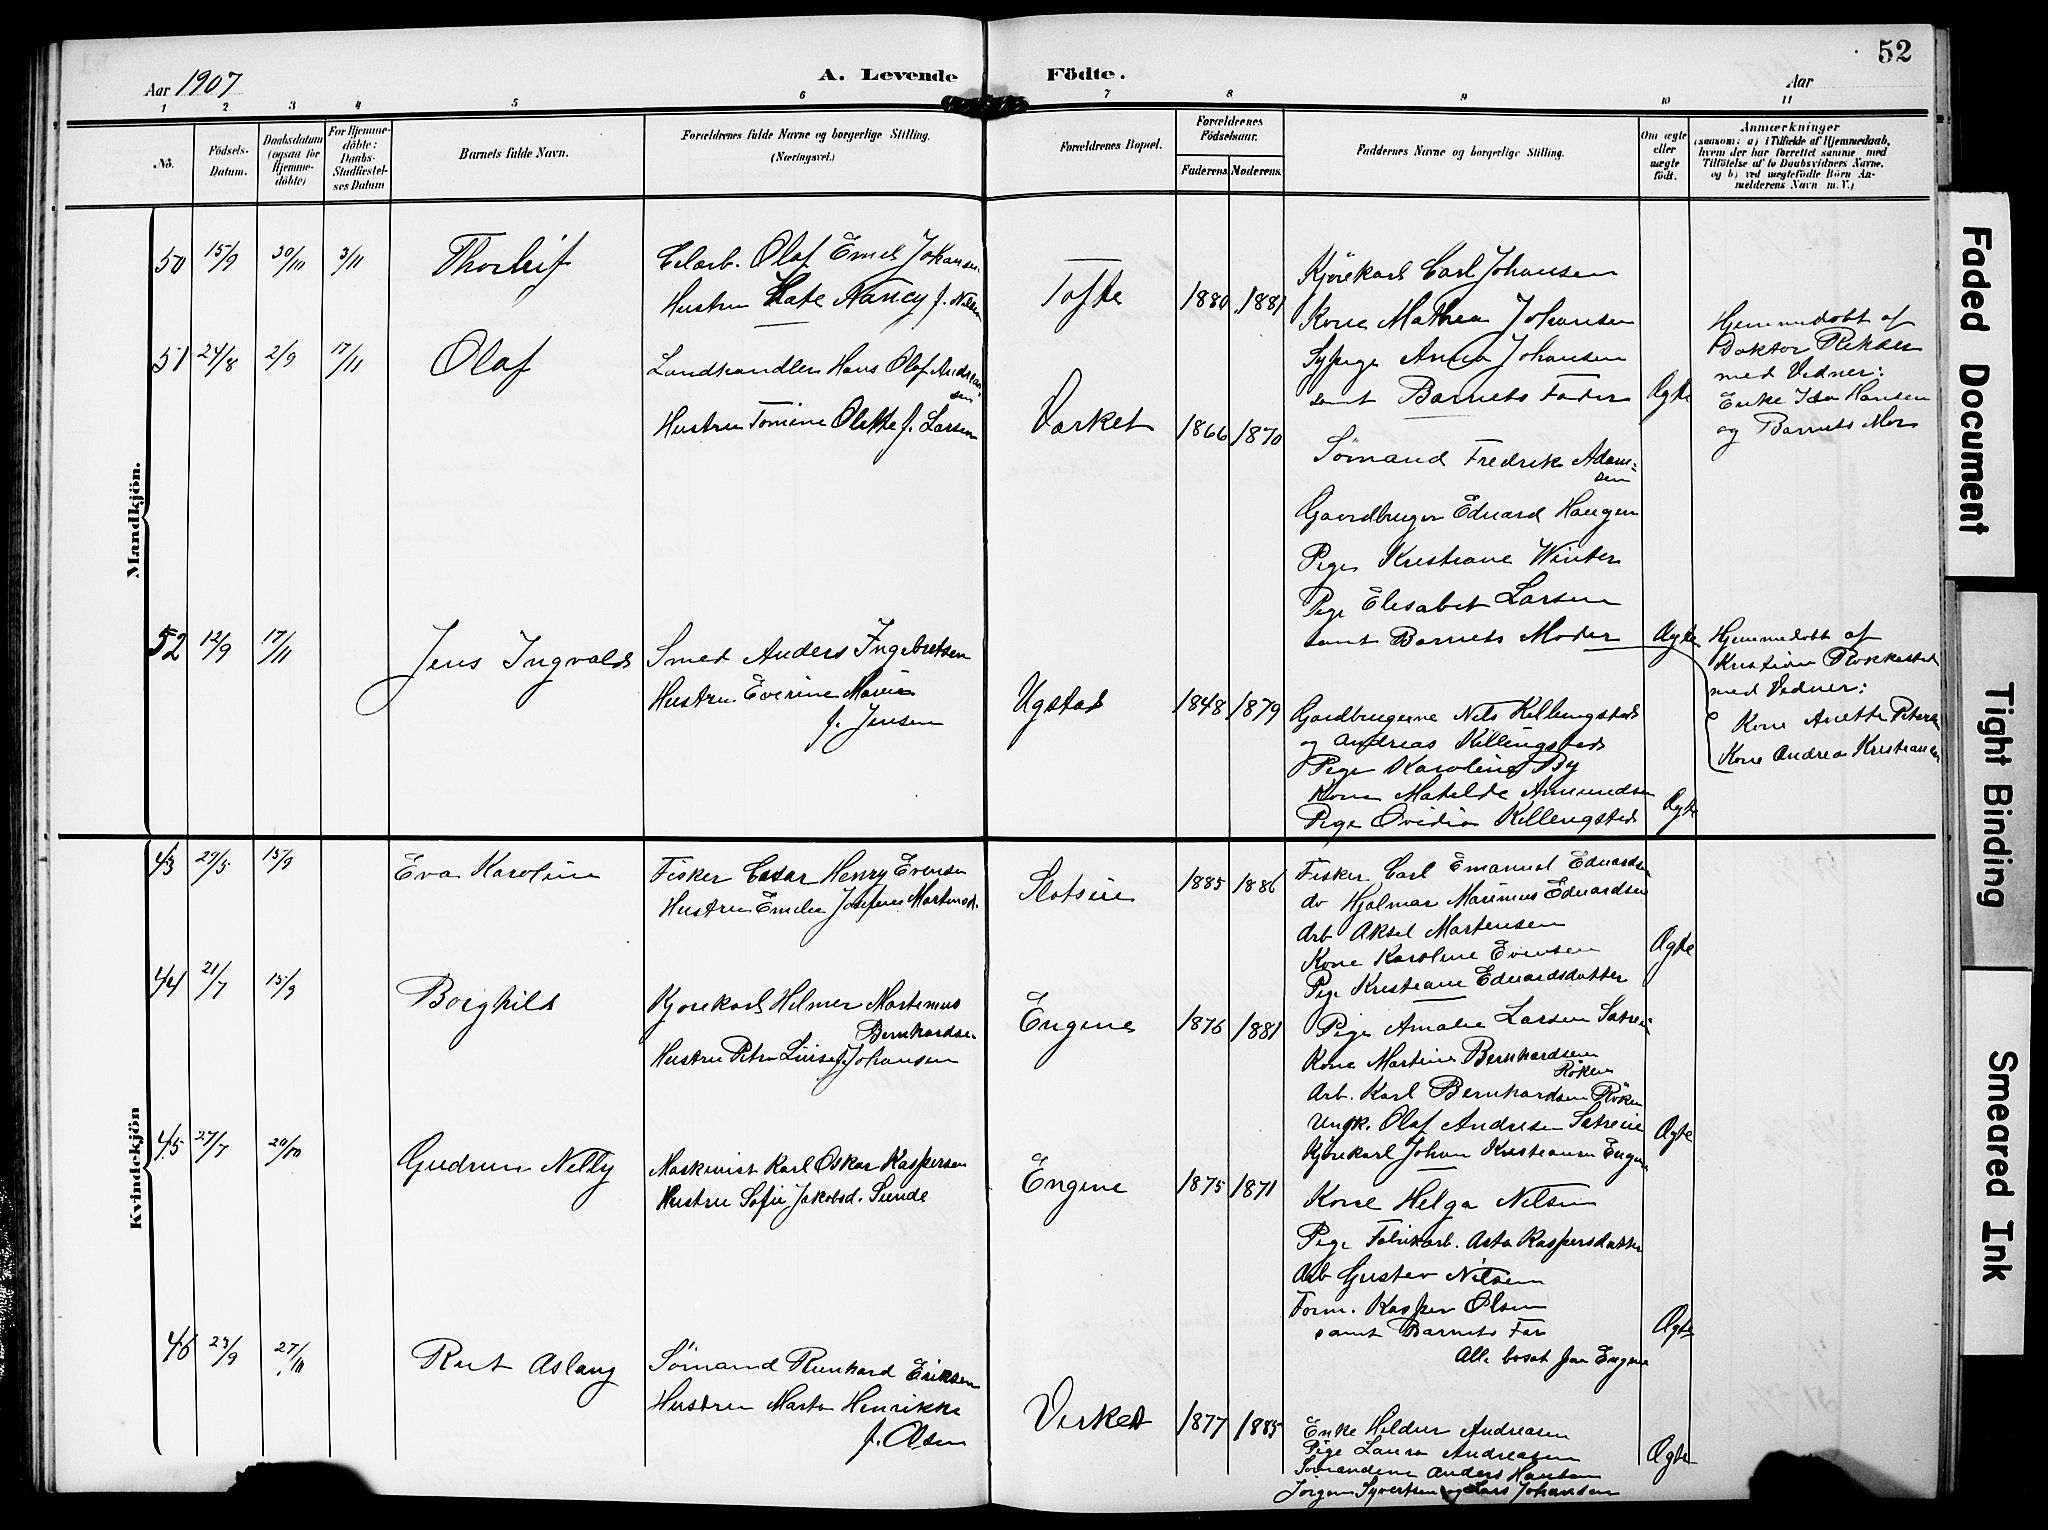 52
Aar 1907
A. Levende Födte.
Aar
1 2 3 4 5 6 7 8 9 10 11
Nô.
Födsels-
Datum.
Daabsdatum
(ogsaa for
Hjemme-
döbte)
For Hjemme-
döbte:
Daabs-
Stadfæstel-
ses Datum
Barnets fulde Navn.
Forældrenes fulde Navne og borgerlige Stilling.
(Næringsvei.)
Forældrenes Bopæl.
Forældrenes
Födselsaar.
Faderens. Moderens.
Faddernes Navne og borgerlige Stilling.
Om ægte
eller
uægte
födt.
Anmærkninger
(saasom: a) i Tilfælde af Hjemmedaab,
hvem der har forrettet samme med
Tilföielse af to Daabsvidners Navne.
og b) ved uægtefödte Börn An-
melderens Navn m. V.)
Mandkjön.
50 15/9 30/10 3/11 Thorleif
Olaf Emil Johansen
Hustru Kate Nancy f. Nilsen
Tofte 1880 1881
Kjörekarl Carl Johansen
Kone Mathea Johansen
Sypige Anna Johansen
samt Barnets Fader Ægte
51 24/8 2/9 17/11 Olaf
Landhandler Hans Olaf Andrea-
sen
Hustru Tomine Olette f. Larsen
Værket 1866 1870
Sömand Fredrik Adam-
sen
Gaardbruger Eduard Haugen
Pige Kristiane Winter
Pige Elisabet Larsen
samt Barnets Moder Ægte
Hjemmedöbt af
Doktor
med Vidner:
Enke Ida Hansen
og Barnets Mor
52 12/9 17/11 Jens Ingvald
Smed Anders Ingebretsen
Hustru Everine Marie
f. Jensen
Ugstad 1848 1879
Gardbrugerne Nils Killingstad
og Andreas Killingstad
Pige Karoline By
Kone Matilde Amundsen
Pige Ovidia Killingstad Ægte
Hjemmedöbt af
Kristian Rokkestad
med Vidner:
Kone Anette Petersen
Kone Andrea Kristiansen
Kvindekjön
43 29/5 15/9 Eva Karoline
Fisker Cæsar Henry Evensen
Hustru Emilie Josefine Martinsd.
Slotsiie 1885 1886
Fisker Carl Emanuel Eduardsen
do Hjalmar Marinius Eduardsen
Arb Aksel Martensen
Kone Karoline Evensen
Pige Kristiane Eduardsdatter Ægte
44 21/7 15/9 Borghild
Kjörekarl Hilmer Martinius
Bernhardsen
Hustru Petra Luise f. Johansen
Engene 1876 1881
Pige Amalie Larsen Sætre
Kone Martine Bernhardsen
Röken
Arb. Karl Bernhardsen Röken
Ungk. Olaf Andresen Sætre
Kjörekarl Johan Kristiansen Engene Ægte
45 27/7 20/10 Gudrun Nelly
Maskinist Karl Oskar Kaspersen
Hustru Sofie Jakobsd. Sunde
Engene 1875 1871
Kone Helga Nilsen
Pige Fabrikarb. Asta Kaspersdatter
Arb Gustav Nilsen
Form. Kasper Olsen
samt Barnets Far Ægte
Alle bosat paa Engene
46 23/9 27/10 Rut Aslaug
Sömand Reinhard Eriksen
Hustru Marta Henrikke
f. Olsen
Verket 1877 1885
Enke Hildur Andreasen
Pige Laura Andreasen
Sömændene Anders Hansen
Jörgen Syvertsen og Lars Johansen Ægte
Faded Document
Tight Binding
Smeared Ink